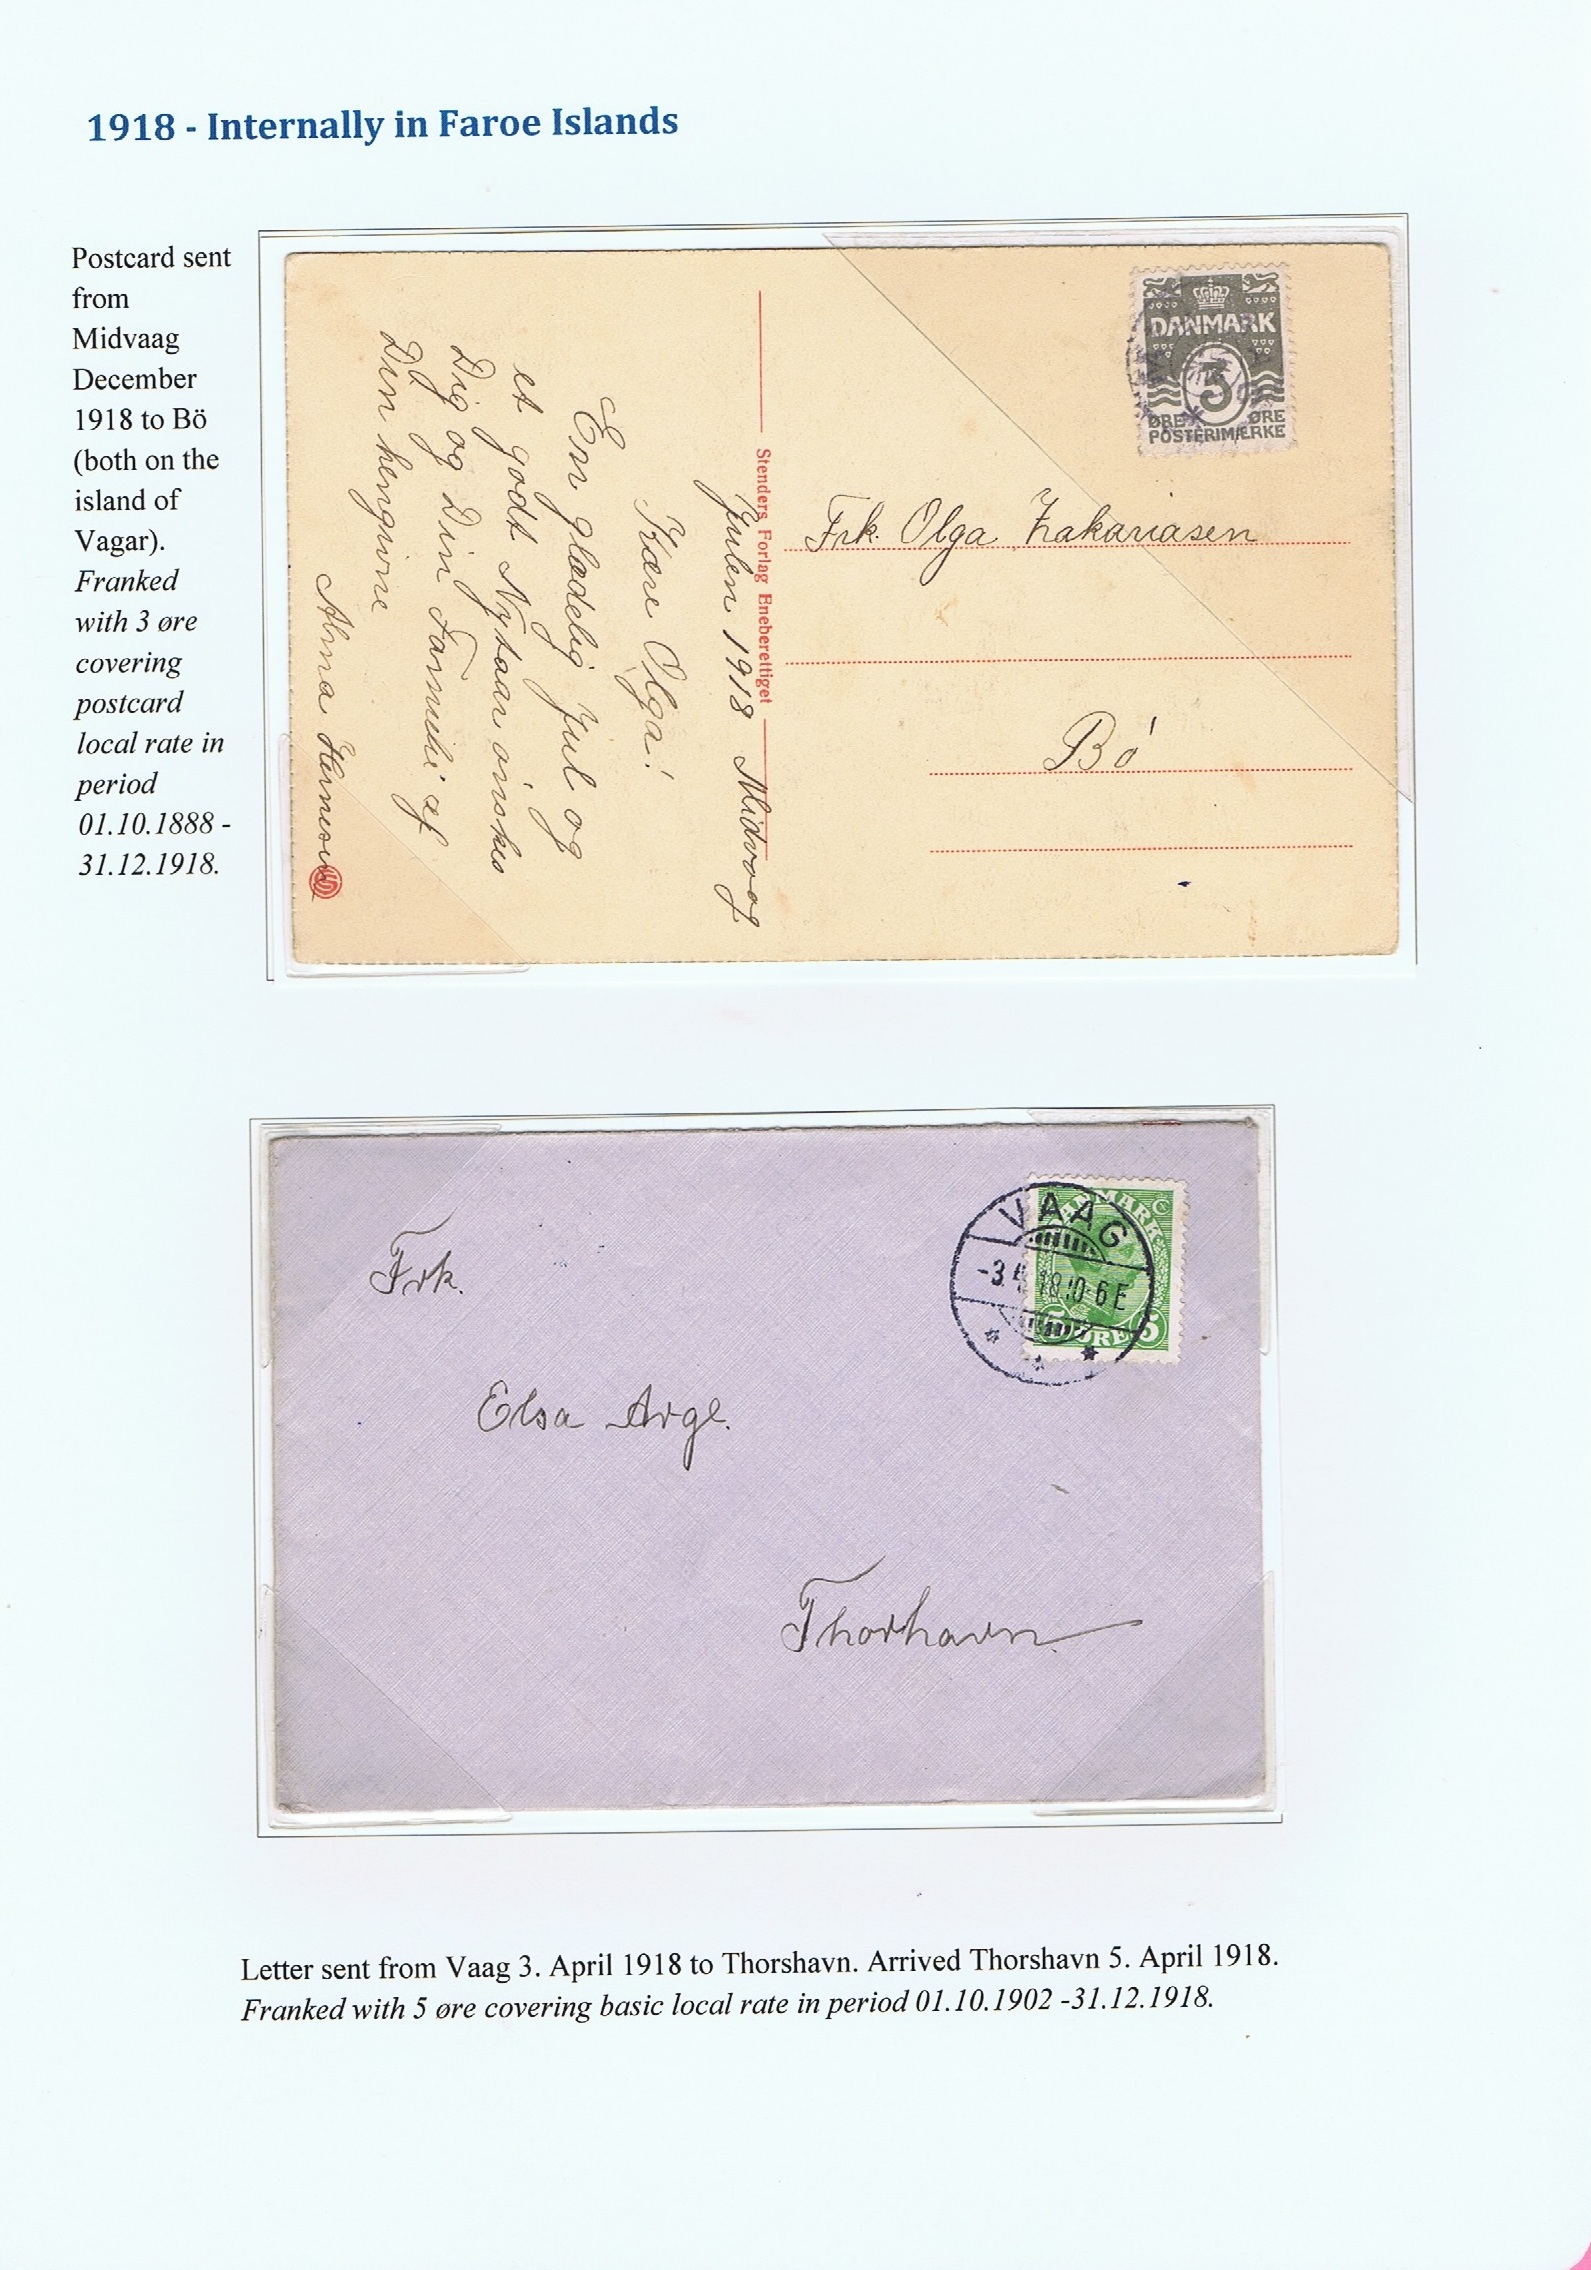 1918 - Internally in Faroe Islands
Postcard sent
from
Midvaag
December
1918 to Bö
(both on the
island of
Vagar).
Franked
with 3 øre
covering
postcard
local rate in
period
01.10.1888 -
31.12.1918.
Julen 1918 Midvaag
Kære Olga!
En glædelig Jul og
et godt Nytaar ønskes
Dig og Din Familie af
Din hengivne
Alma
Stenders Forlag Eneberettiget
DANMARK
3
ØRE ØRE
POSTFRIMÆRKE
Frk. Olga Zakariasen
Bó
VAAG
-3.4.18.10-6E
DANMARK
5 ØRE 5
Frk.
Elsa Arge.
Thorshavn.
Letter sent from Vaag 3. April 1918 to Thorshavn. Arrived Thorshavn 5. April 1918.
Franked with 5 øre covering basic local rate in period 01.10.1902 -31.12.1918.